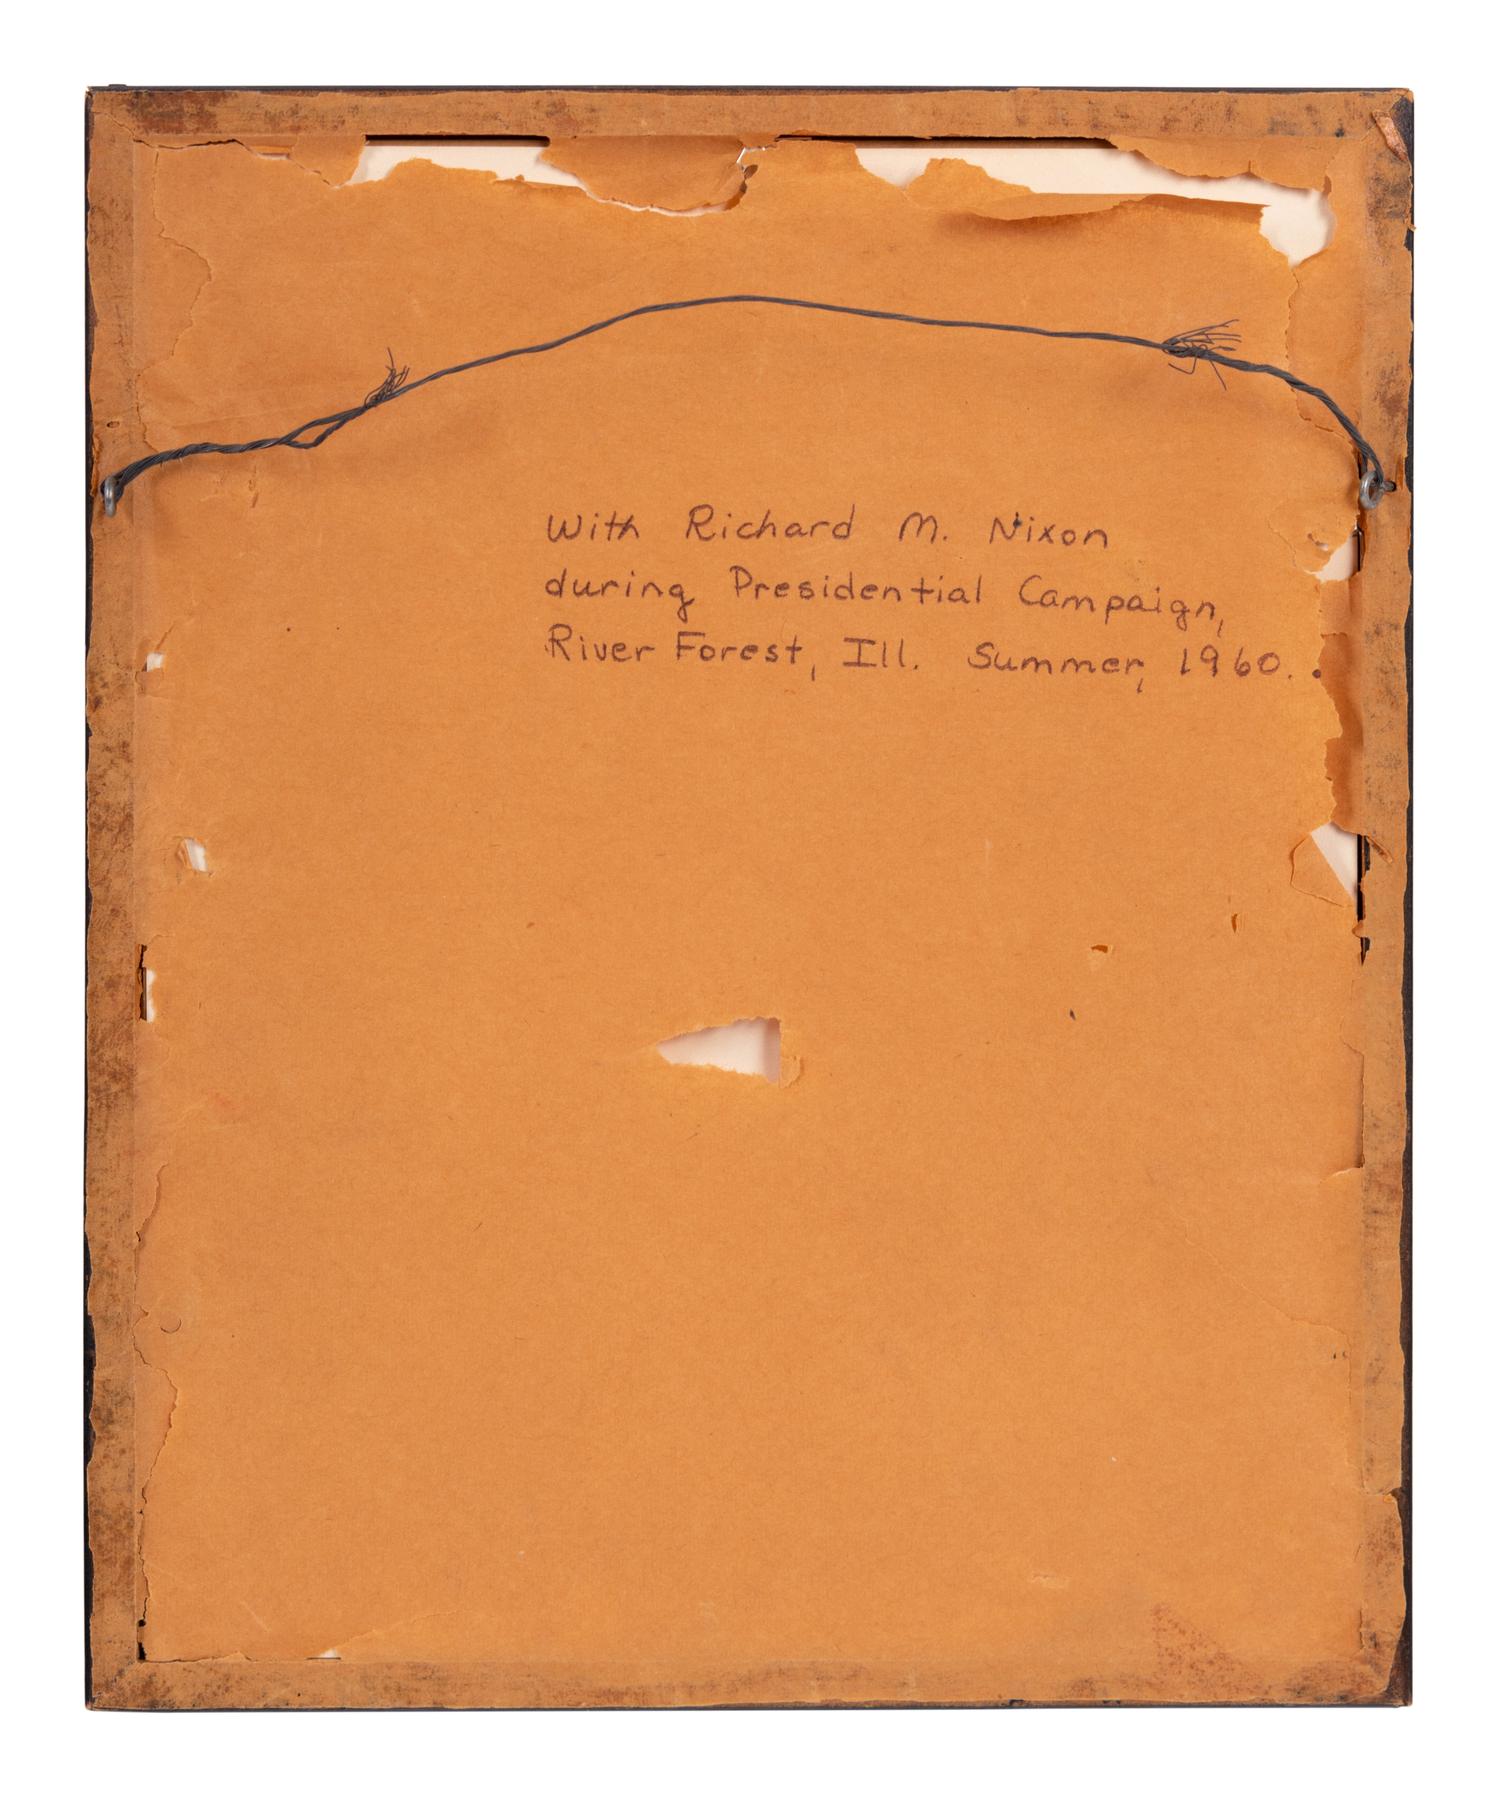 With Richard M. Nixon
during Presidential Campaign,
River Forest, Ill. Summer, 1960.